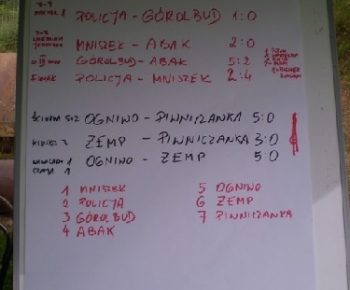 POLICJA - GÓROLBUD 1:0
MNISZEK - ABAK 2:0
GÓROLBUD - ABAK 5:2
POLICJA - MNISZEK 2:4
OGNIWO - PIWNICZANKA 5:0
ZEMP - PIWNICZANKA 3:0
OGNIWO - ZEMP 5:0
1 MNISZEK
2 POLICJA
3 GÓROLBUD
4 ABAK
5 OGNIWO
6 ZEMP
7 PIWNICZANKA